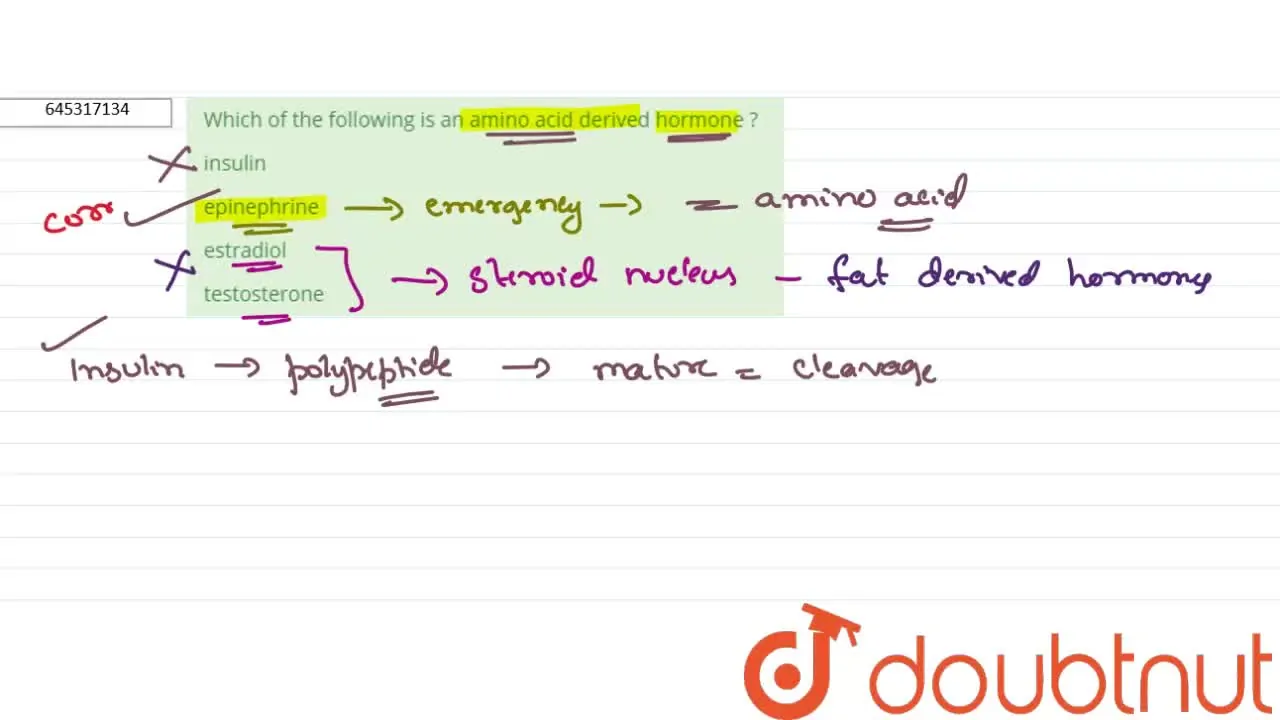 645317134
Which of the following is an amino acid derived hormone ?
insulin
corr epinephrine → emergency → = amino acid
estradiol
→ steroid nucleus – fat derived hormones
testosterone
Insulin → polypeptide → mature = cleavage
doubtnut